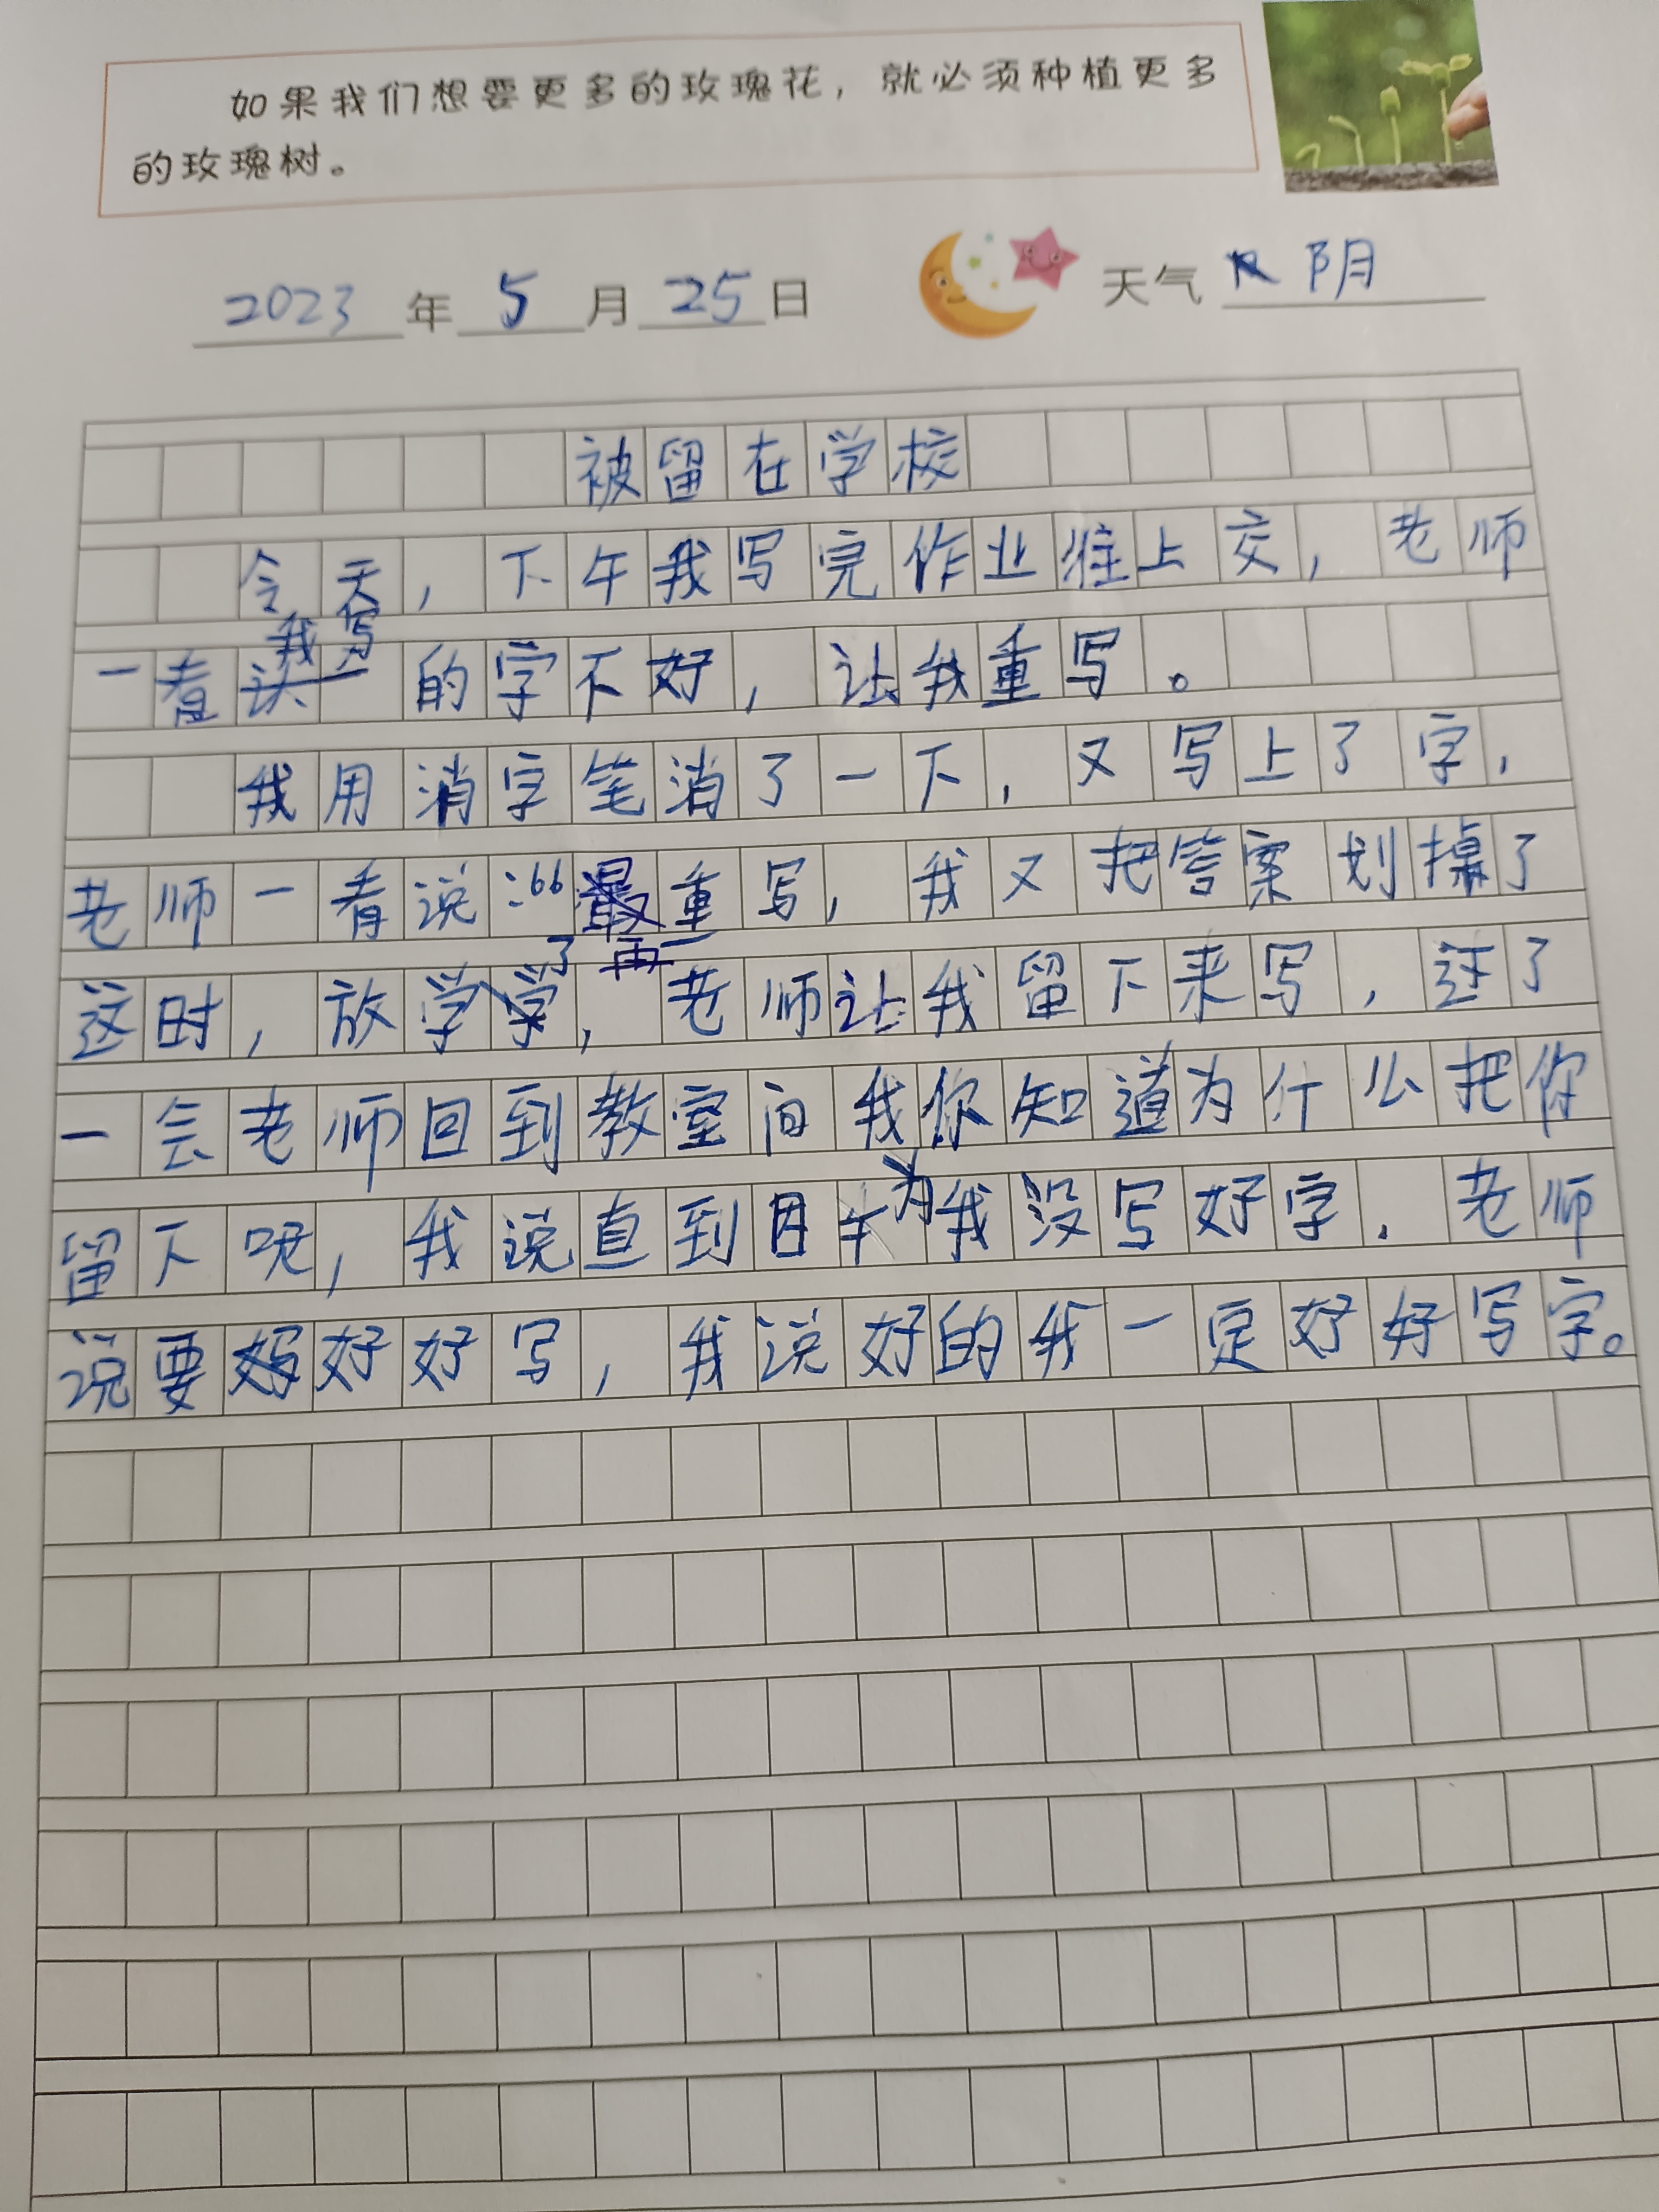 如果我们想要更多的玫瑰花，就必须种植更多
的玫瑰树。
2023年5月25日 天气 阴
被留在学校
今天，下午我写完作业往上交，老师
一看我写的字不好，让我重写。
我用消字笔消了一下，又写上了字，
老师一看说：“重写，我又把答案划掉了
这时，放学了，老师让我留下来写，过了
一会老师回到教室间我你知道为什么把你
留下呢，我说直到因为我没写好字．老师
说要好好写，我说好的我一定好好写字。